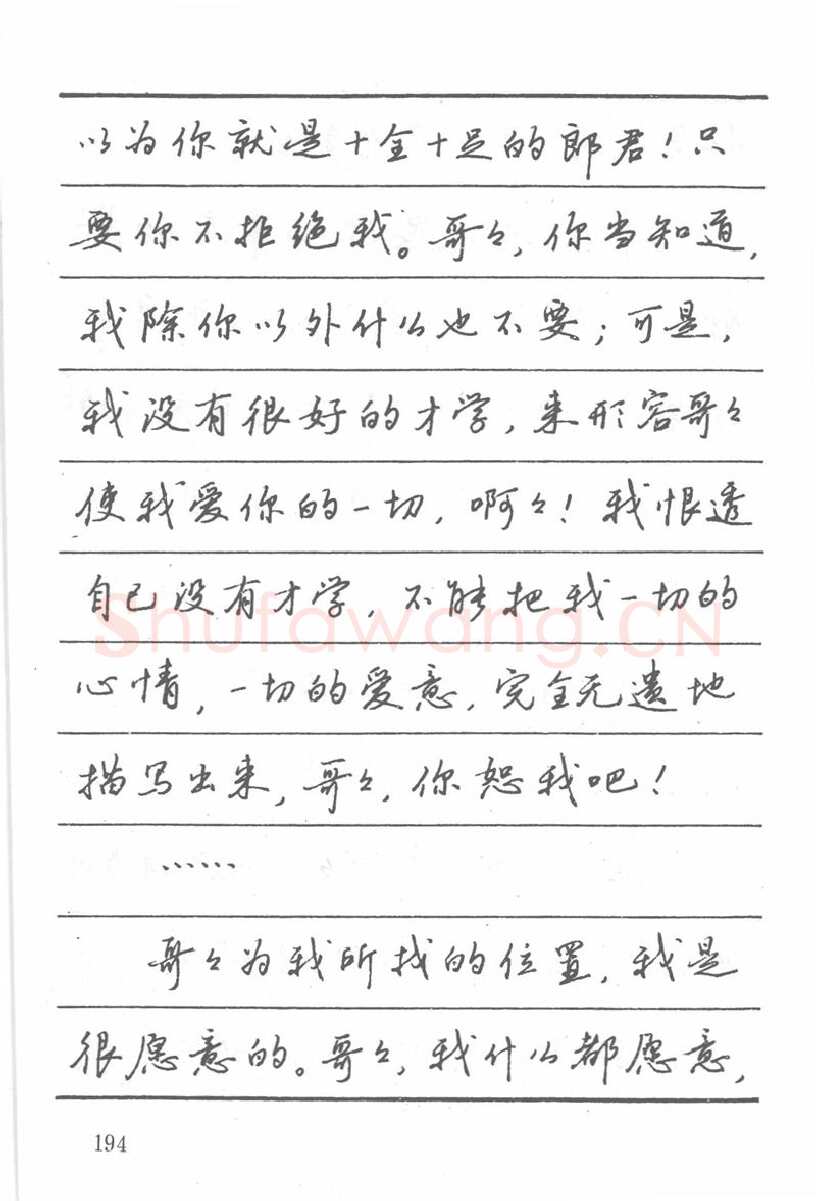 以为你就是十全十足的郎君！只
要你不拒绝我。哥々，你当知道，
我除你以外什么也不要；可是，
我没有很好的才学，来形容哥々
使我爱你的一切，啊々！我恨透
自己没有才学，不能把我一切的
心情，一切的爱意，完全无遗地
描写出来，哥々，你恕我吧！
……
哥々为我所找的位置，我是
很愿意的。哥々，我什么都愿意，
194
Shufawang.CN